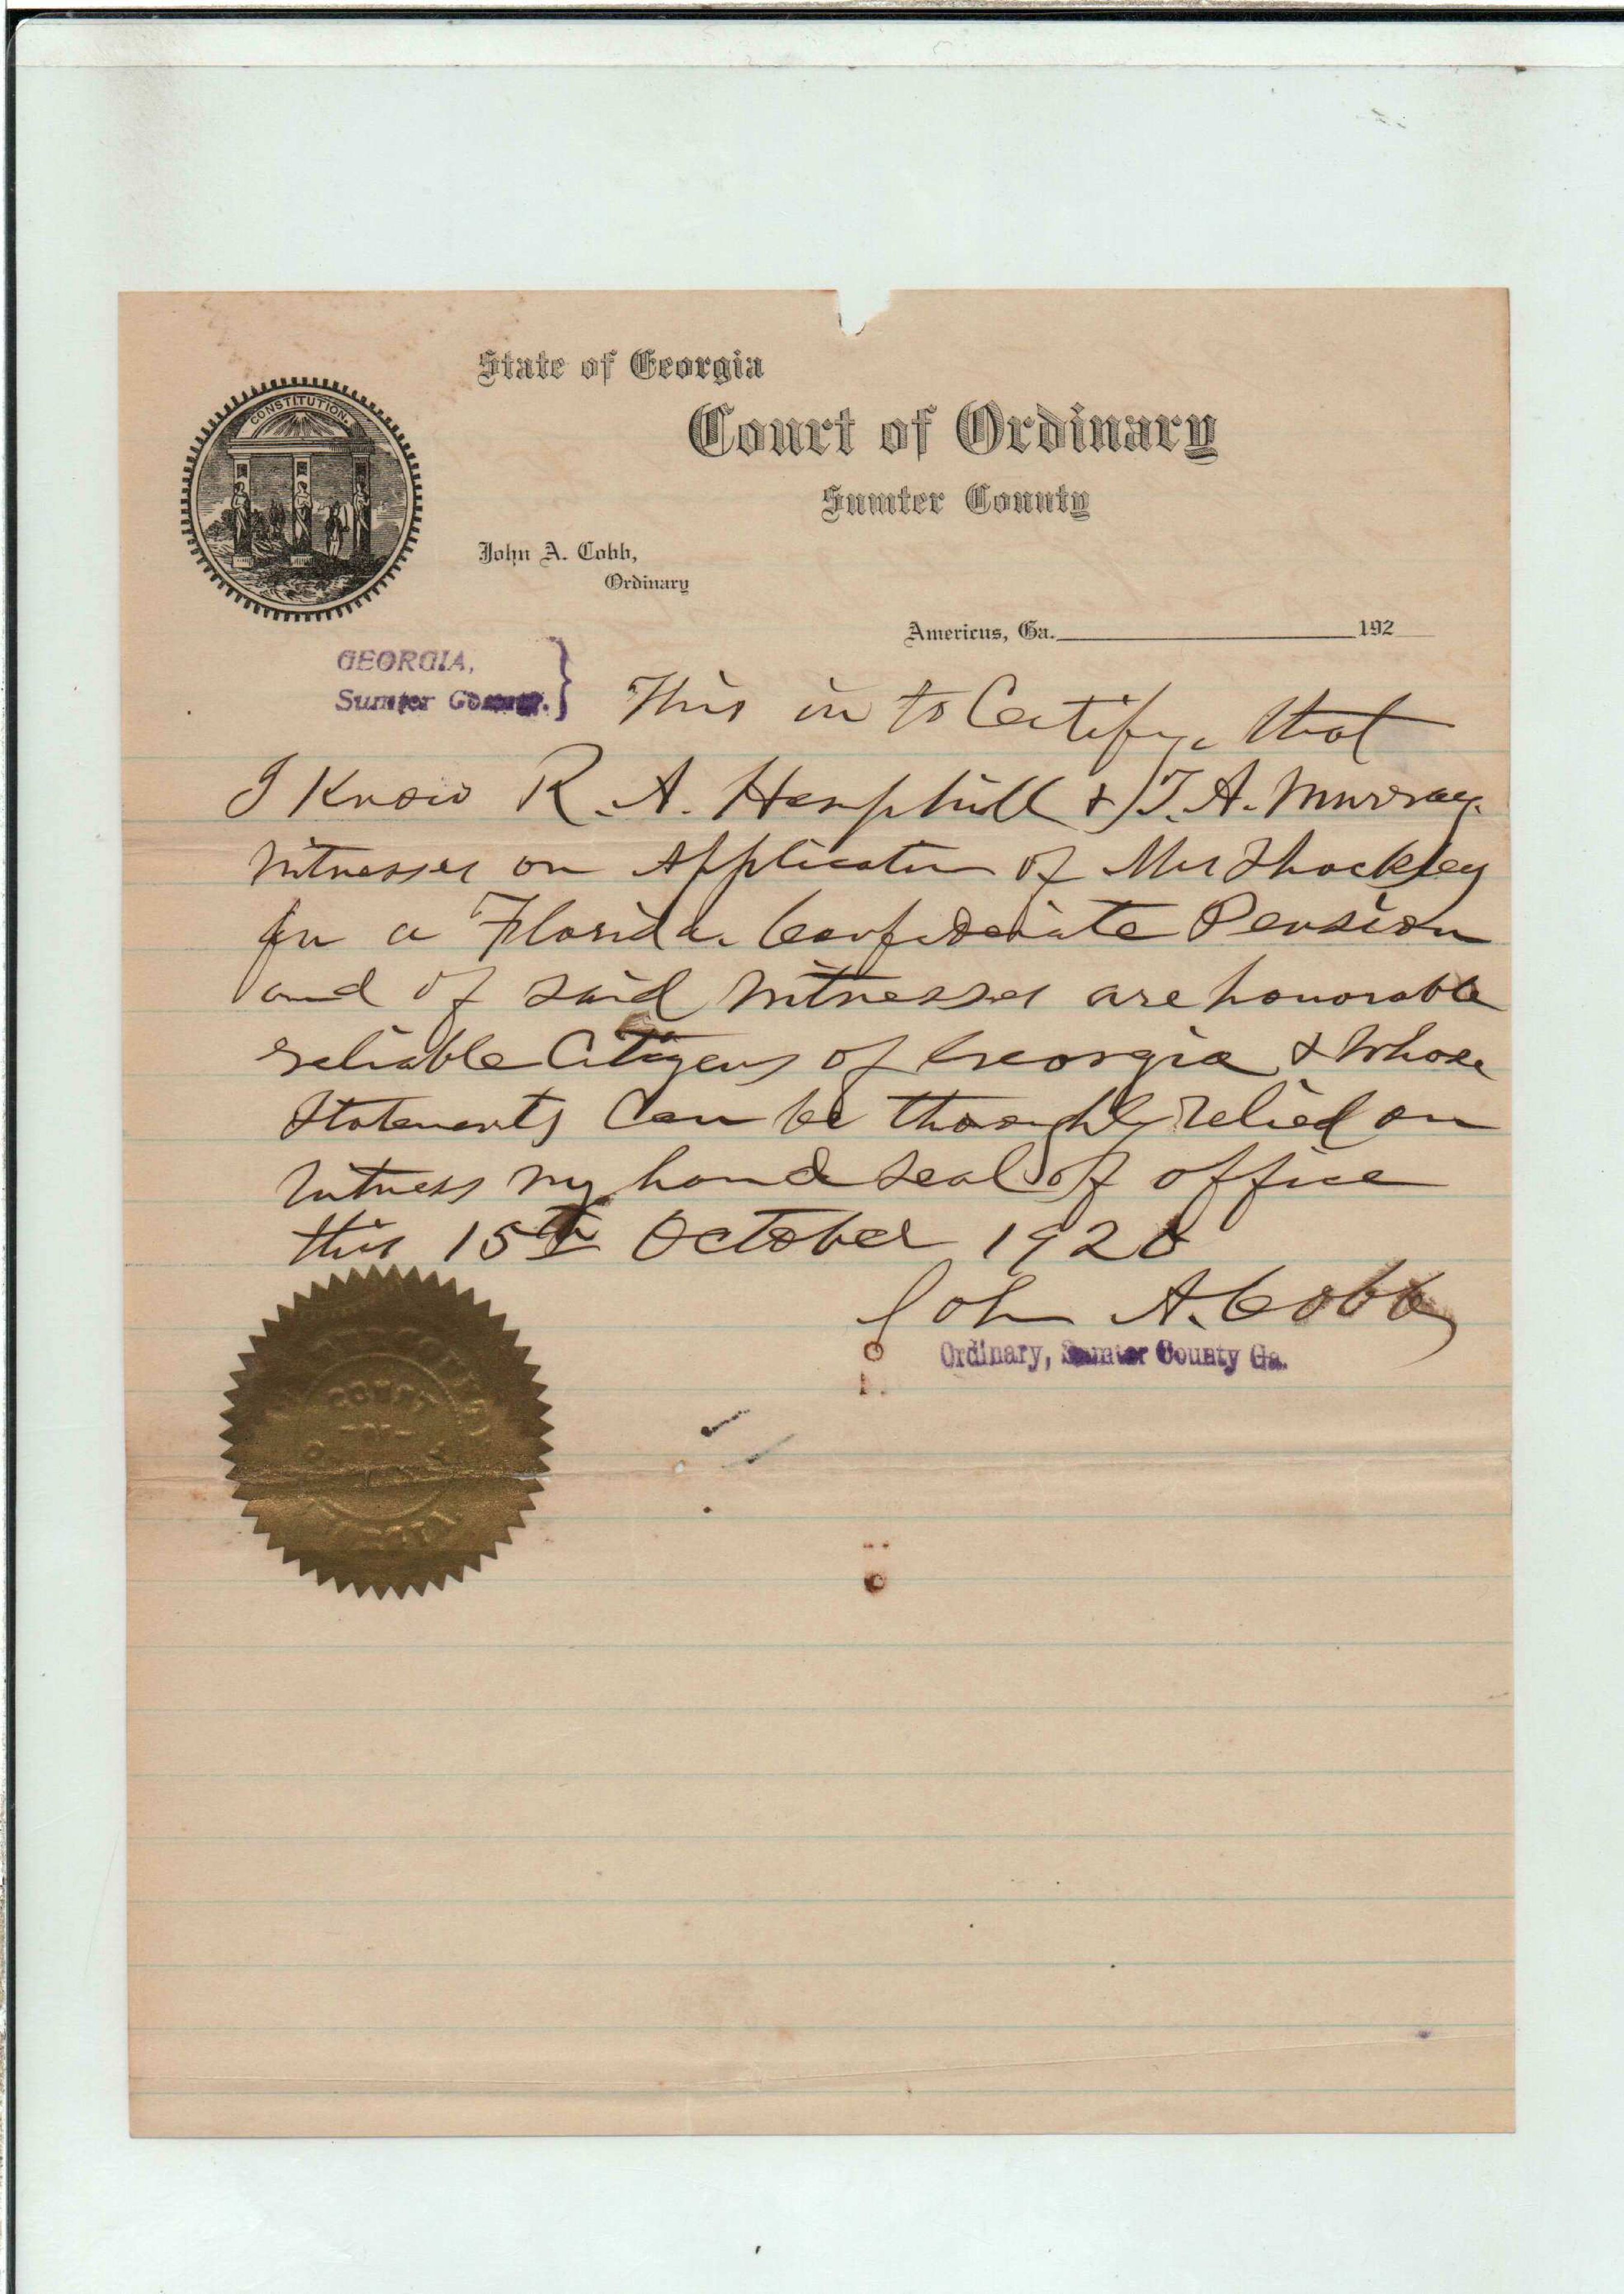 State of Georgia
Court of Ordinary
Sumter County
CONSTITUTION.
John A. Cobb,
Ordinary
Americus, Ga. 192
GEORGIA,
Sumter County. }
This is to Certify, that
I Know R. A. Hemphill & T. A. Murray.
Witnesses on Application of Mrs Shockley
for a Florida Confederate Pension
and of said Witnesses are honorable
reliable Citizens of Georgia & Whose
Statements Can be thoroughly relied on
Witness my hand seal of office
this 15th October 1920
John A. Cobb
Ordinary, Sumter County Ga.
COURT
OF